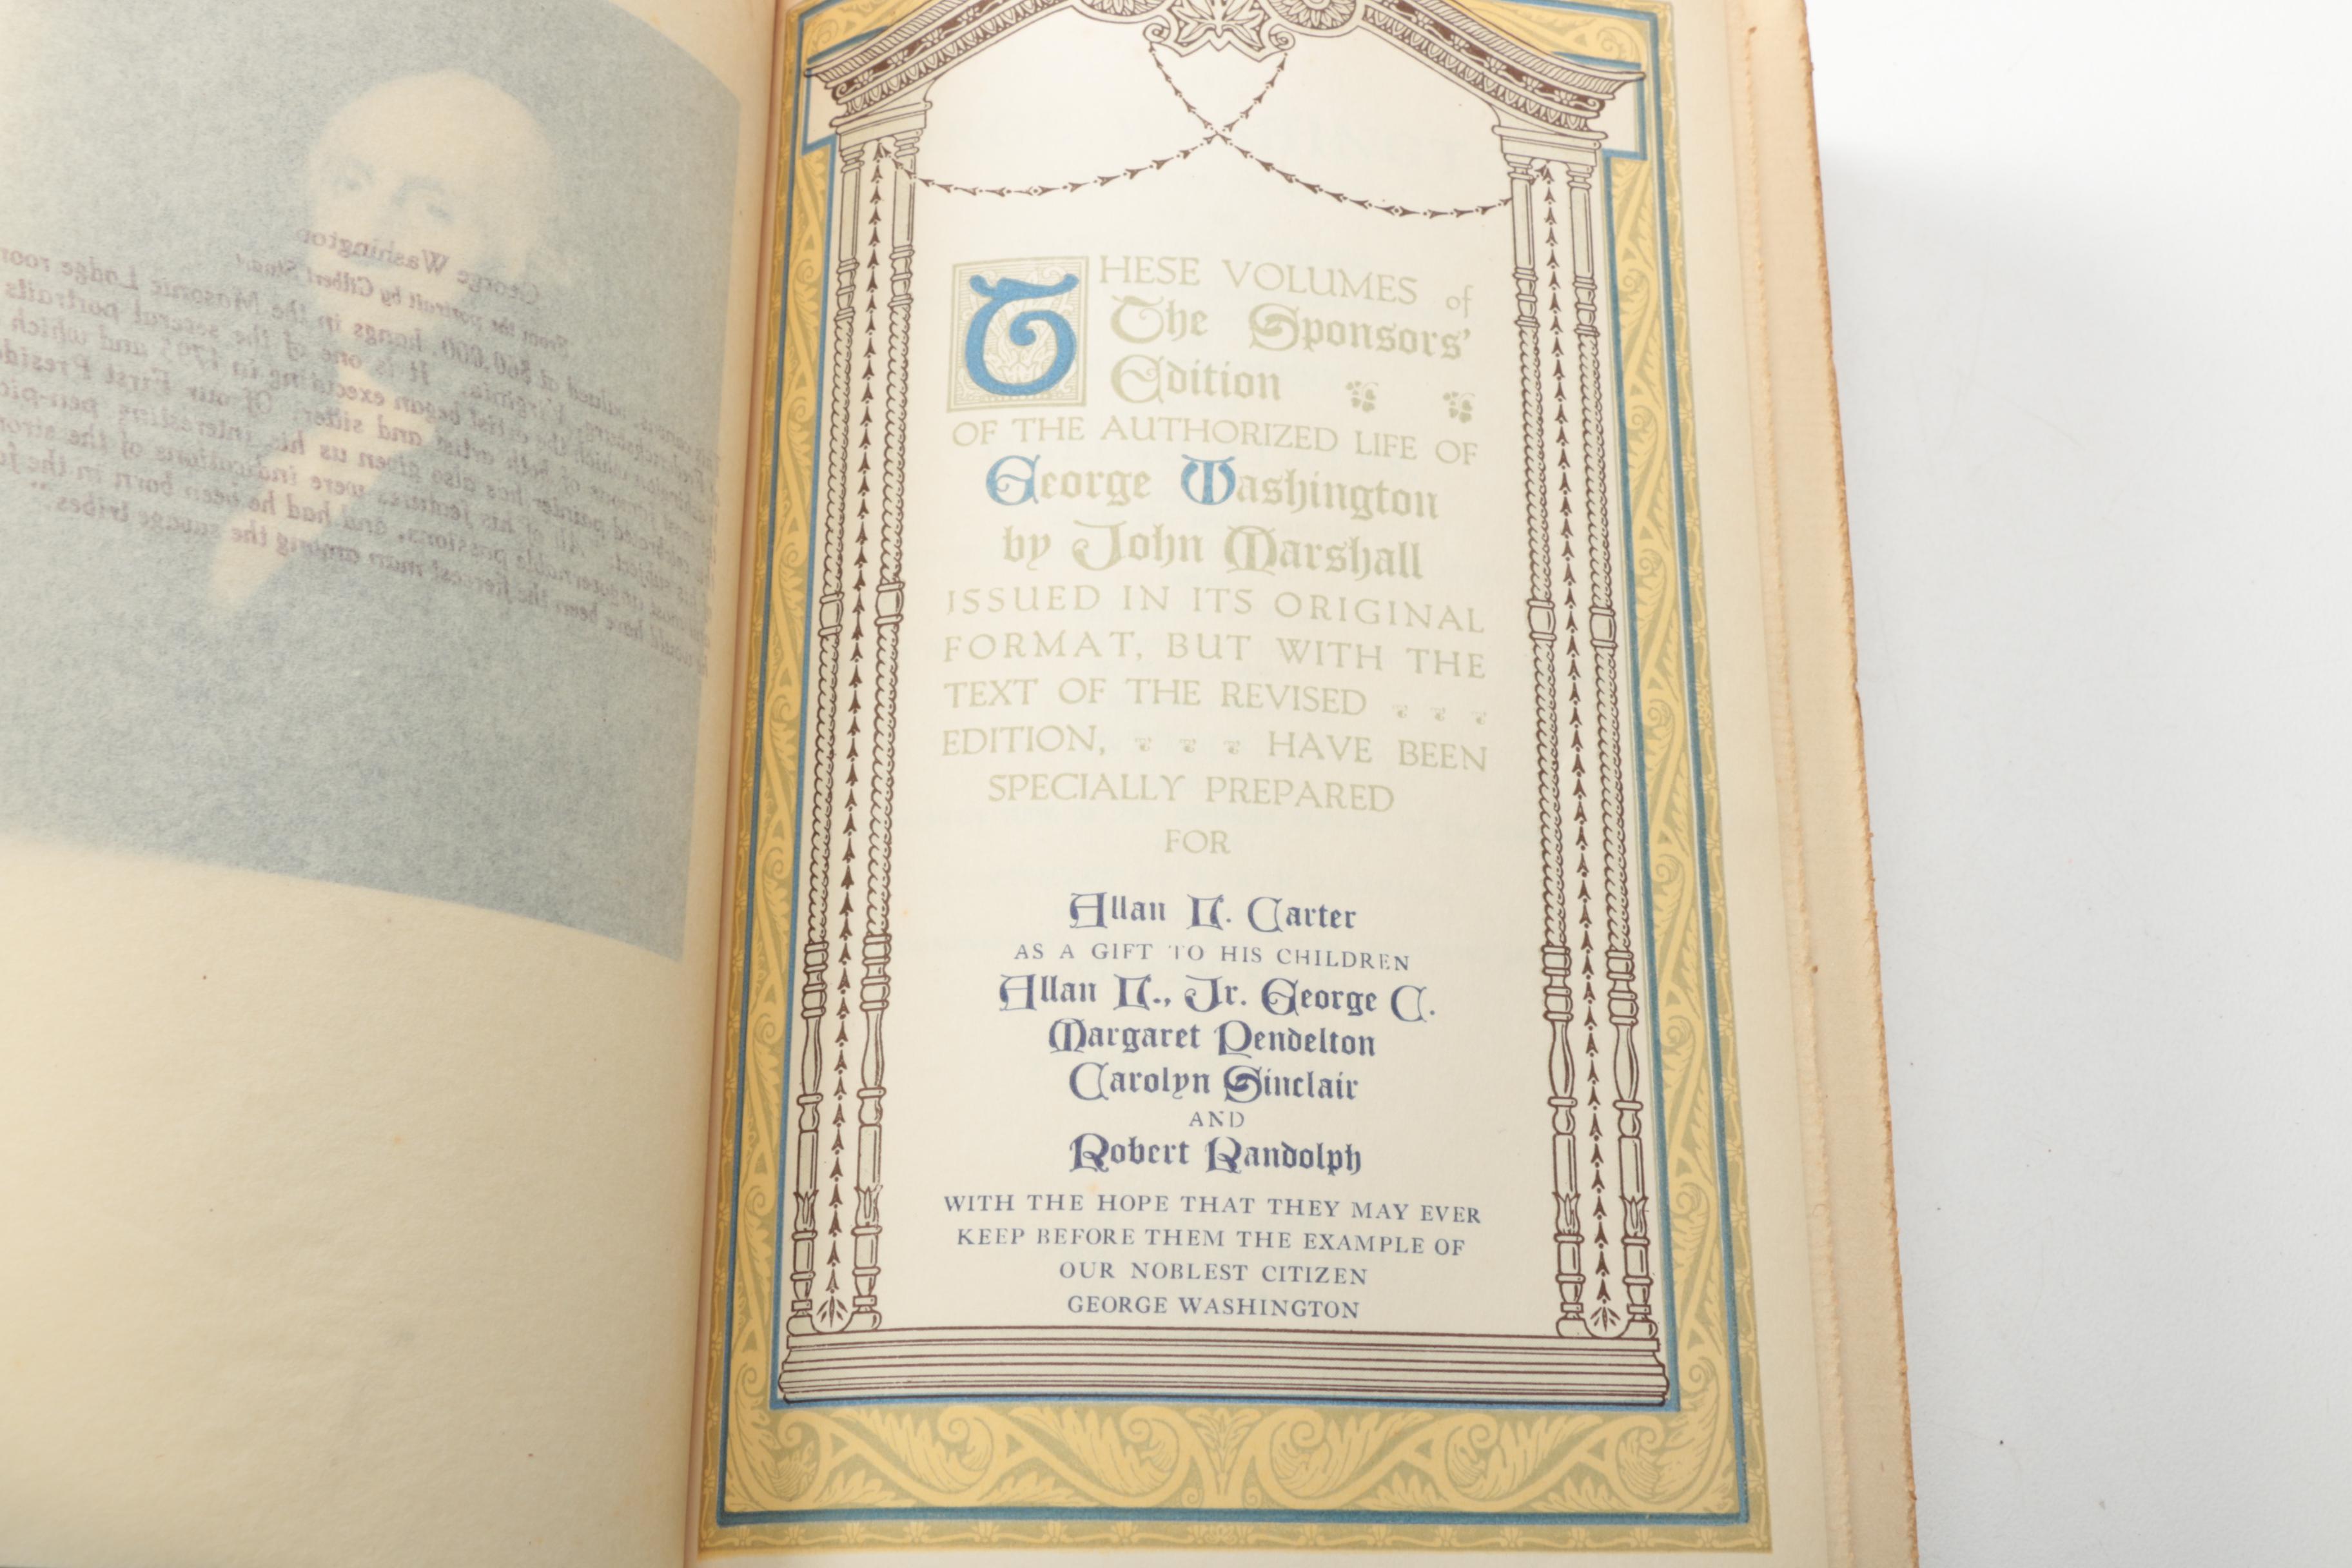 George Washington
From the portrait by Gilbert Stuart
canvas, valued at $60,000, hangs in the Masonic Lodge
Fredericksburg, Virginia. It is one of the several portraits
which the artist began executing in 1795 and which
famous of both artist and sitter. Of our First
celebrated painter has also given us his interesting
subject: "All of his features were indications of the
most ungovernable passions, and had he been born in the
would have been the fiercest man among the savage tribes."
THESE VOLUMES of
The Sponsors'
Edition
OF THE AUTHORIZED LIFE OF
George Washington
by John Marshall
ISSUED IN ITS ORIGINAL
FORMAT, BUT WITH THE
TEXT OF THE REVISED
EDITION, HAVE BEEN
SPECIALLY PREPARED
FOR
Allan N. Carter
AS A GIFT TO HIS CHILDREN
Allan N., Jr. George C.
Margaret Pendelton
Carolyn Sinclair
AND
Robert Randolph
WITH THE HOPE THAT THEY MAY EVER
KEEP BEFORE THEM THE EXAMPLE OF
OUR NOBLEST CITIZEN
GEORGE WASHINGTON